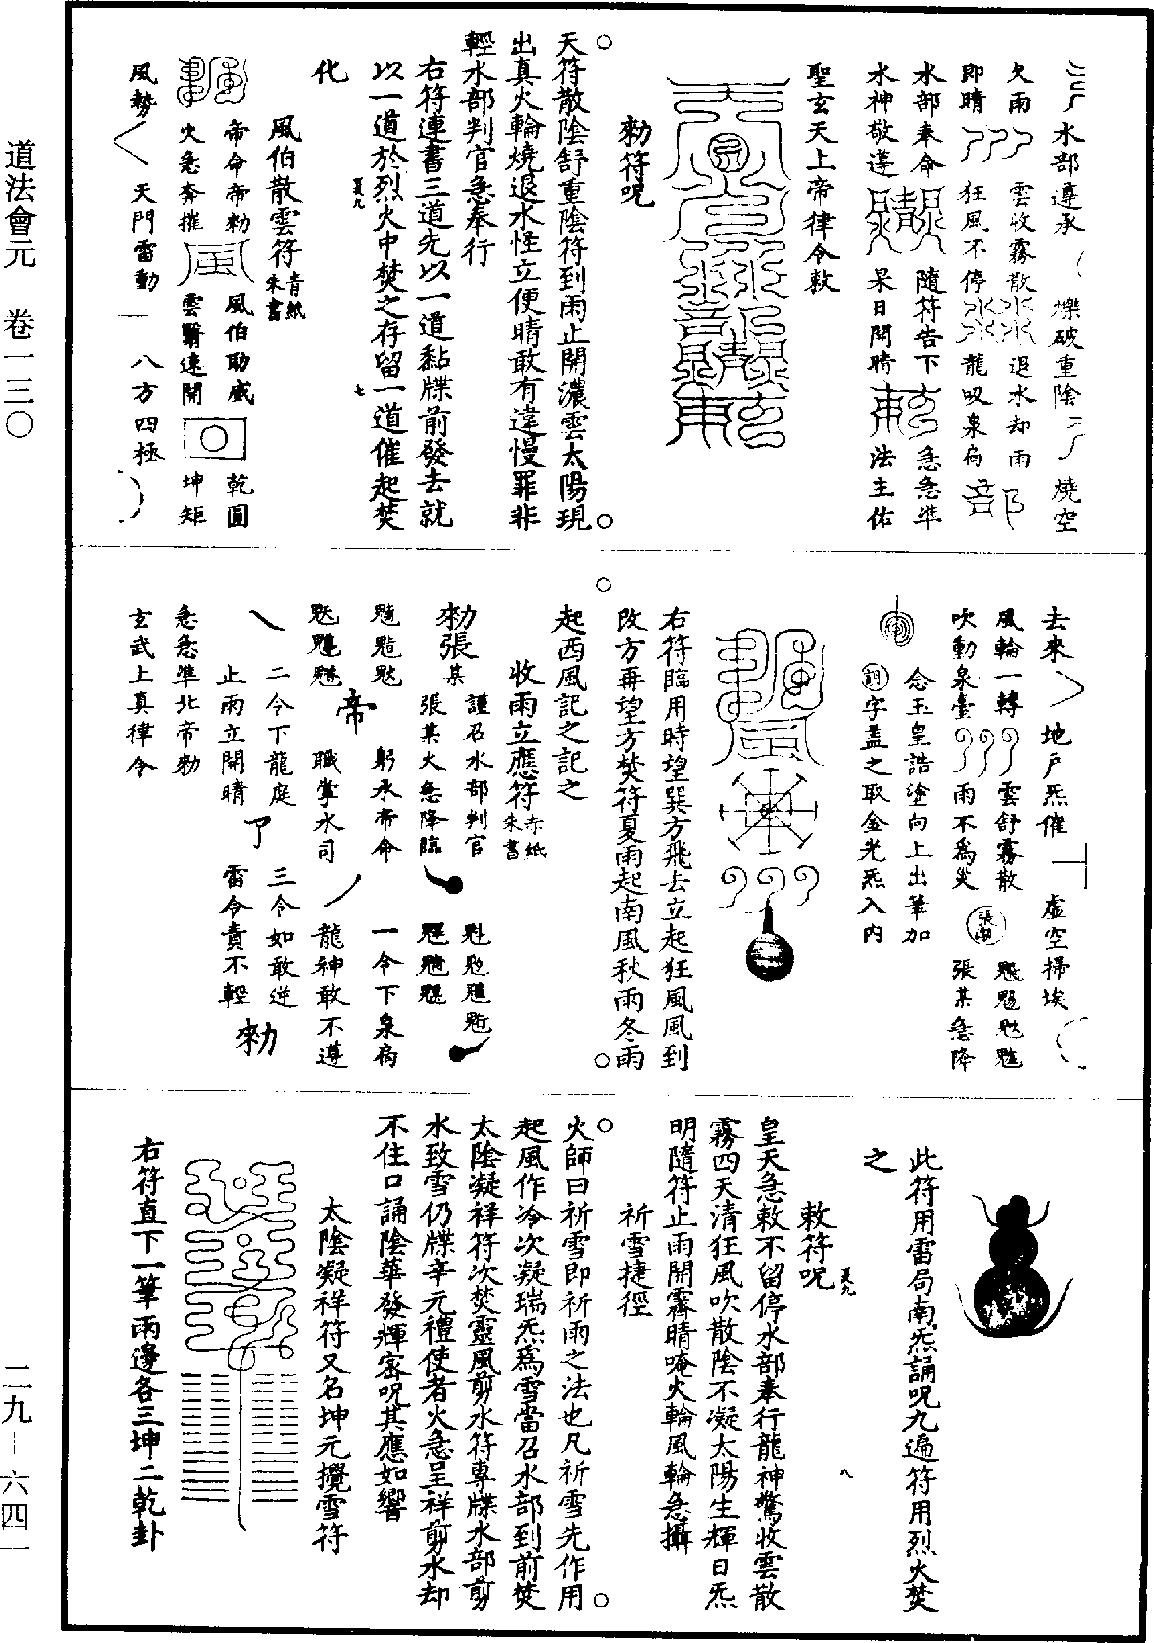 道法會元　卷一三〇
二九－六四一
水部遵承　爍破重陰　燒空
欠雨　雲收霧散　退水却雨
即晴　狂風不停　龍収泉扃
水部奉命　隨符告下　急急準
水神敬遵　杲日開晴　法主佑
聖玄天上帝律令敕
勑符呪
天符散陰舒重陰符到雨止開濃雲太陽現
出真火輪燒退水性立便晴敢有違慢罪非
輕水部判官急奉行
右符連書三道先以一道黏牒前發去就
以一道於烈火中焚之存留一道催起焚
化
風伯散雲符青紙朱書
帝命帝勑　風伯助威　乾圓
火急奔摧　雲翳遠開　坤矩
風勢　天門雷動　八方四極
去來　地户炁催　虛空掃埃
風輪一轉　雲舒霧散
吹動泉臺　雨不爲災　張某急降
念玉皇誥塗向上出筆加
字蓋之取金光炁入内
右符臨用時望巽方飛去立起狂風風到
改方再望方焚符夏雨起南風秋雨冬雨
起西風記之記之
收雨立應符赤紙朱書
謹召水部判官
勑張某
張某火急降臨
躬承帝命　一令下泉扃
帝
職掌水司　龍神敢不遵
二令下龍庭　三令如敢逆
止雨立開晴　雷令責不輕
了
勑
急急準北帝勑
玄武上真律令
此符用雷局南炁誦呪九遍符用烈火焚
之
敕符呪
皇天急敕不留停水部奉行龍神驚收雲散
霧四天清狂風吹散陰不凝太陽生輝日炁
明隨符止雨開霽晴唵火輪風輪急攝
祈雪捷徑
火師曰祈雪即祈雨之法也凡祈雪先作用
起風作冷次凝瑞炁爲雪當召水部到前焚
太陰凝祥符次焚靈風剪水符專牒水部剪
水致雪仍牒辛元禮使者火急呈祥剪水却
不住口誦陰華發輝密呪其應如響
太陰凝祥符又名坤元攪雪符
右符直下一筆兩邊各三坤二乾卦